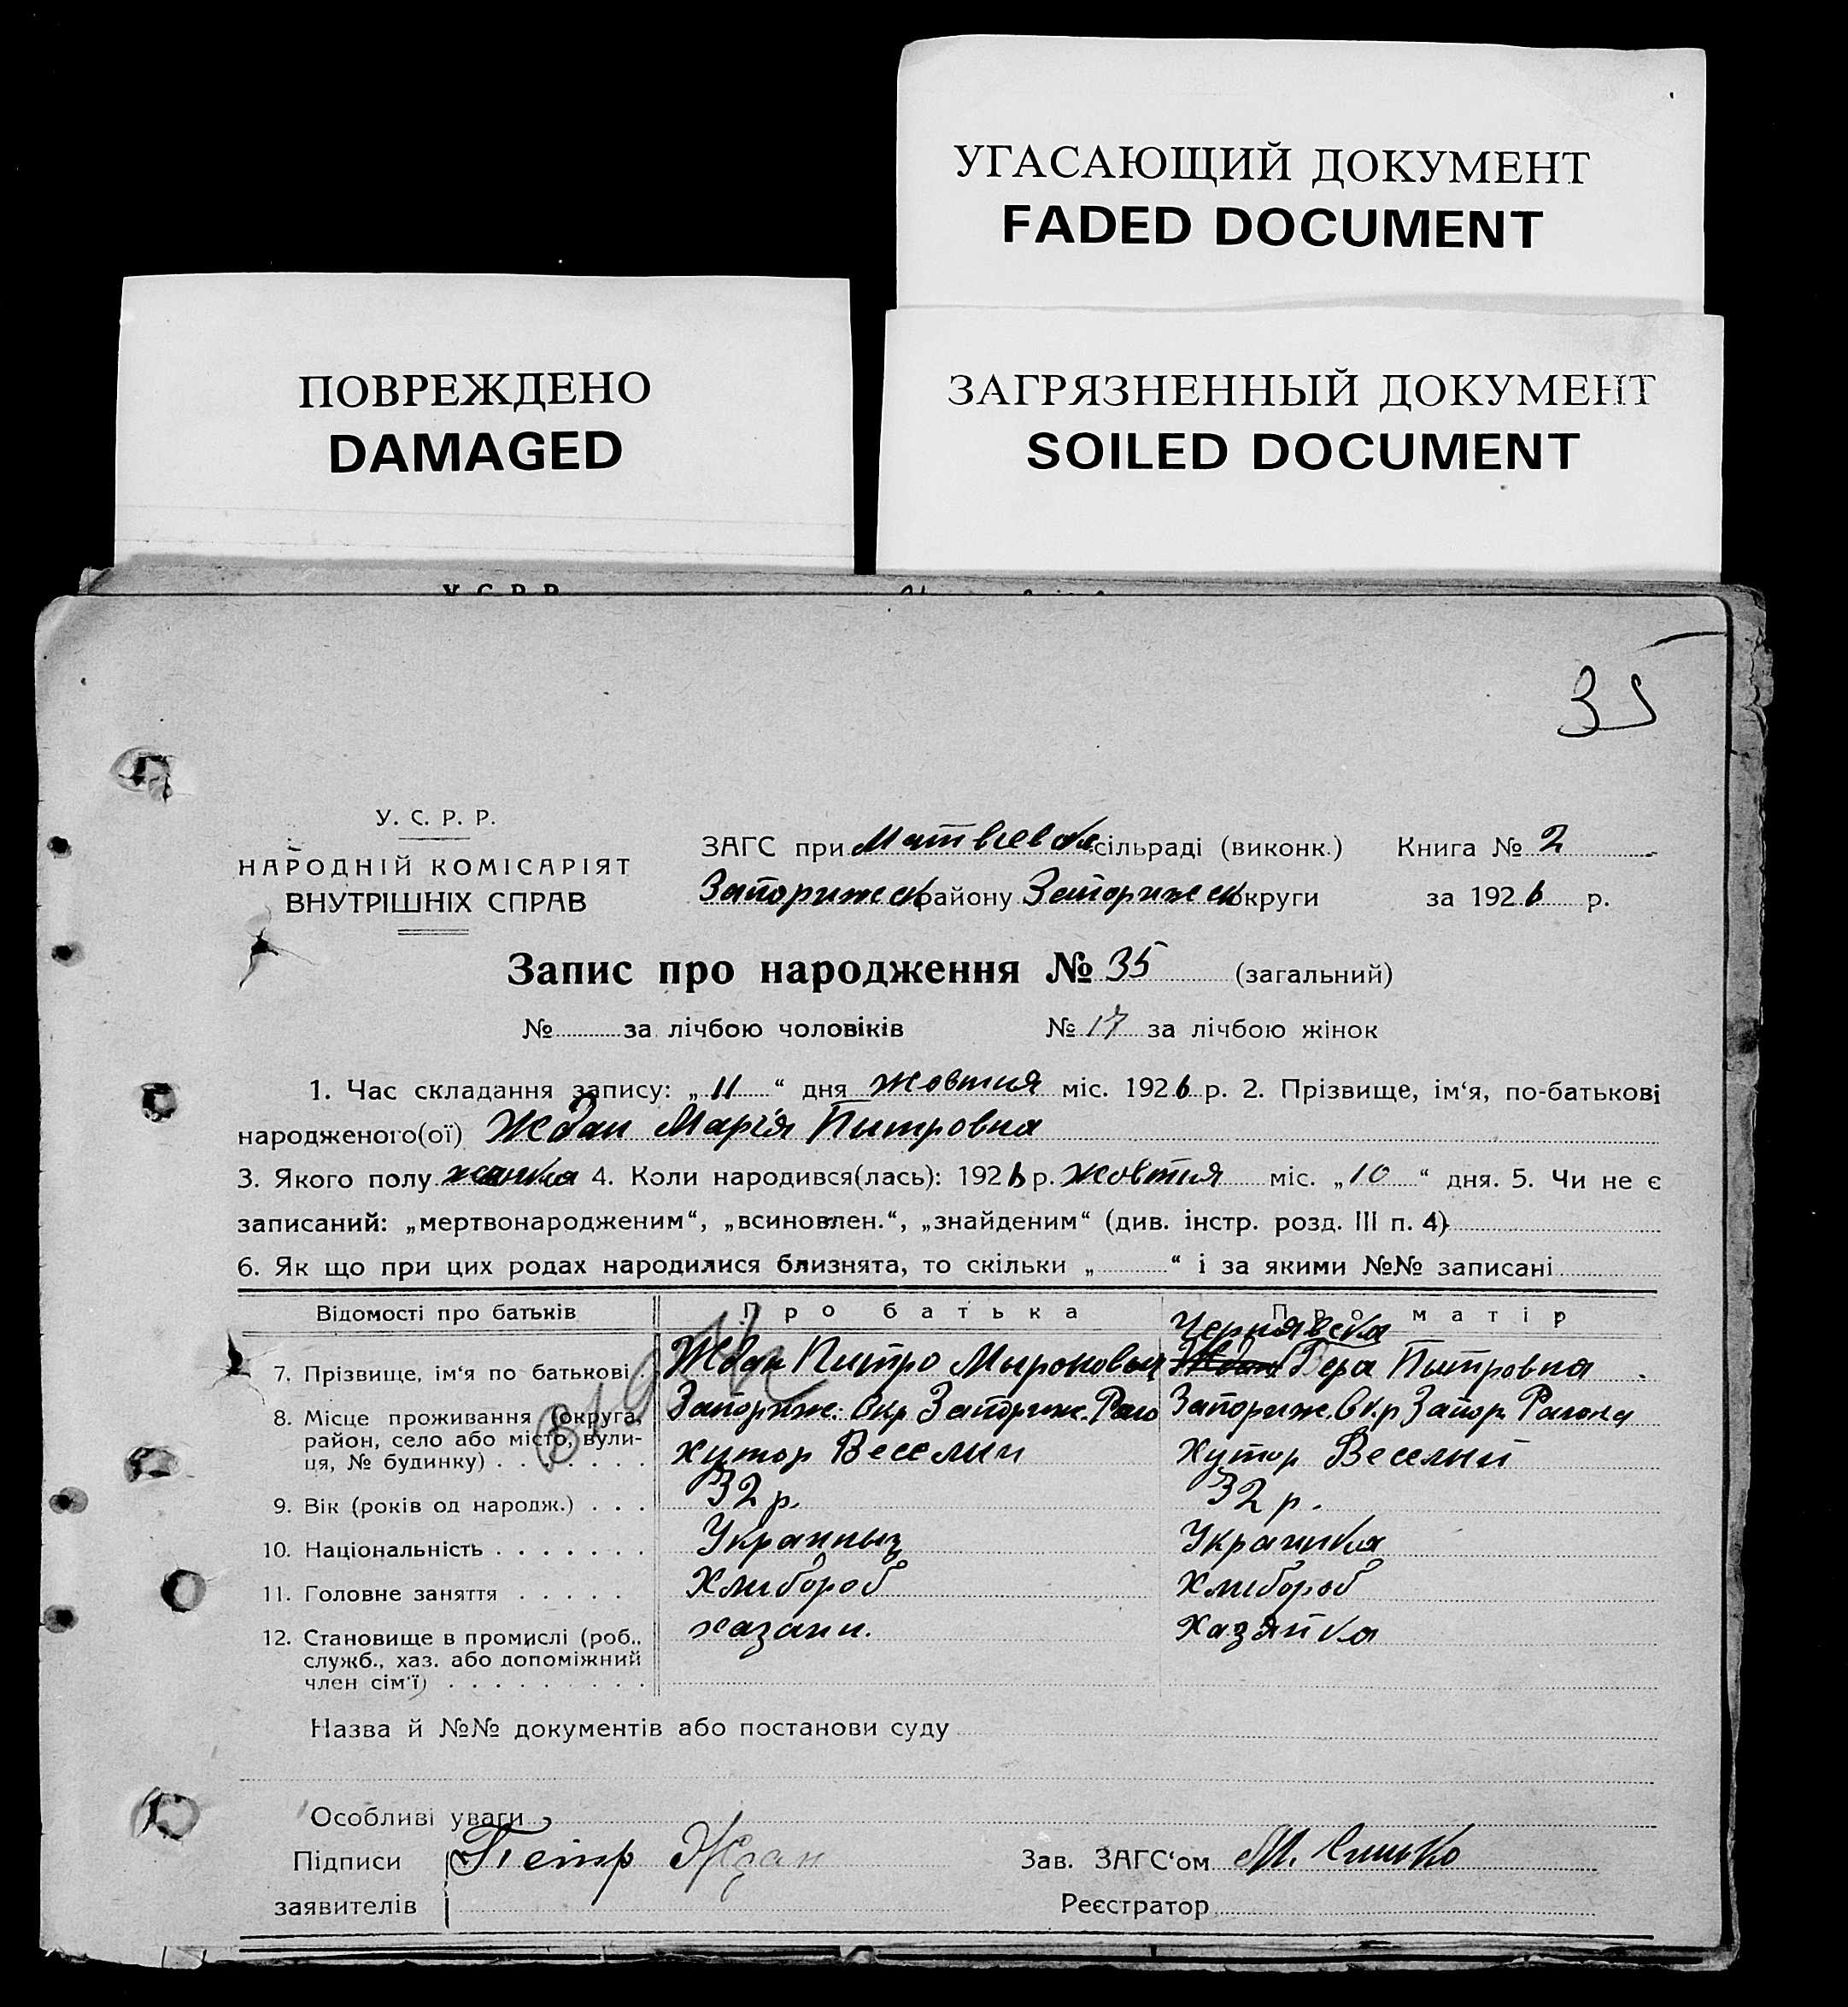 УГАСАЮЩИЙ ДОКУМЕНТ
FADED DOCUMENT
ПОВРЕЖДЕНО
DAMAGED
ЗАГРЯЗНЕННЫЙ ДОКУМЕНТ
SOILED DOCUMENT
У.С.Р.Р.
35
У. С. Р. Р.
НАРОДНІЙ КОМІСАРІЯТ
ВНУТРІШНІХ СПРАВ
ЗАГС при Матвіевск сільраді (виконк.) Книга № 2
Запорижск району Запорижск округи за 1926 р.
Запис про народження № 35 (загальний)
№ за лічбою чоловіків № 17 за лічбою жінок
1. Час складання запису: „ 11 “ дня жовтня міс. 1926 р. 2. Прізвище, ім‘я, по-батькові
народженого(ої) Ждан Марія Питровна
3. Якого полу жинка 4. Коли народився(лась): 1926 р. жовтня міс. „ 10 “ дня. 5. Чи не є
записаний: „мертвонародженим“, „всиновлен.“, „знайденим“ (див. інстр. розд. III п. 4)
6. Як що при цих родах народилися близнята, то скільки „ “ і за якими №№ записані
Відомості про батьків Про батька Про матір
Чернявска
7. Прізвище, ім‘я по батькові . Ждан Питро Мыронович Ждан Пытровна
8. Місце проживання (округа, район, село або місто, вули- ця, № будинку) . . . . . . . Запориж. Окр Запориж. Раю Запориж. Окр Запор. Раиона
хутор Веселии хутор Веселый
9. Вік (років од народж.) . . . 32 р. 32 р.
10. Національність . . . . . . . Украиныц Украинка
11. Головне заняття . . . . . Хлибороб Хлибороб
12. Становище в промислі (роб., служб., хаз. або допоміжний член сім‘ї) . . . . . . . . . хазаин. Хазяйка
Назва й №№ документів або постанови суду
Особливі уваги
Підписи Петр Ждан Зав. ЗАГС‘ом М.
заявителів Реєстратор